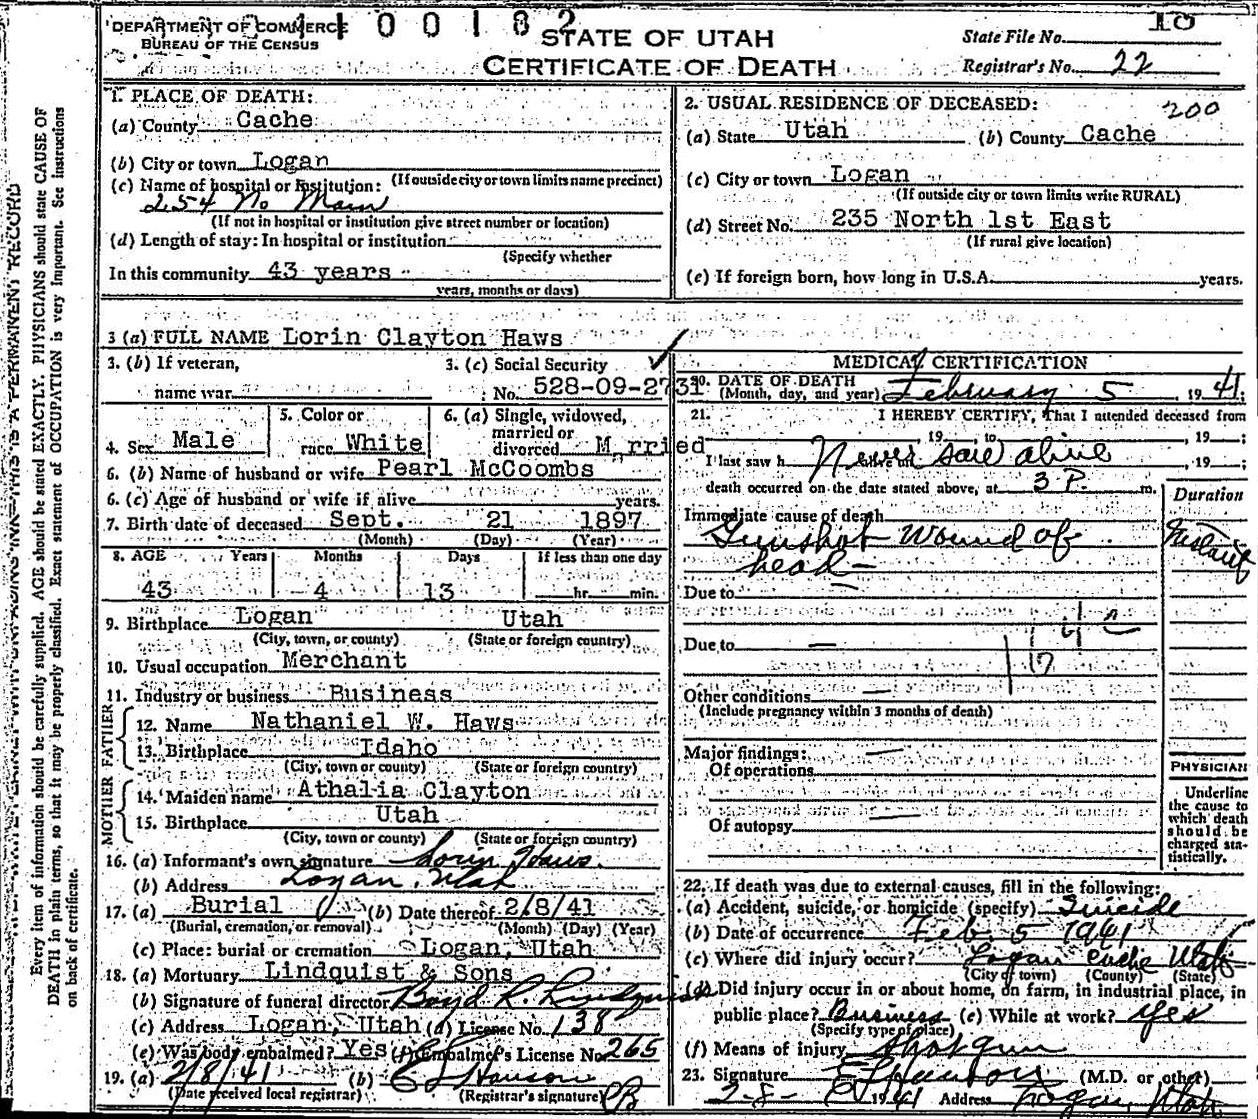 DEPARTMENT OF COMMERCE
BUREAU OF THE CENSUS
4100182
STATE OF UTAH
CERTIFICATE OF DEATH
State File No. 18
Registrar's No. 22
1. PLACE OF DEATH:
(a) County Cache
(b) City or town Logan
(If outside city or town limits name precinct)
(c) Name of hospital or institution:
254 No Main
(If not in hospital or institution give street number or location)
(d) Length of stay: In hospital or institution
(Specify whether
In this community 43 years
years, months or days)
2. USUAL RESIDENCE OF DECEASED: 200
(a) State Utah (b) County Cache
(c) City or town Logan
(If outside city or town limits write RURAL)
(d) Street No. 235 North 1st East
(If rural give location)
(e) If foreign born, how long in U.S.A. years.
3 (a) FULL NAME Lorin Clayton Haws
3. (b) If veteran,
name war
3. (c) Social Security
No. 528-09-2731
4. Sex Male
5. Color or
race White
6. (a) Single, widowed,
married or
divorced M rried
6. (b) Name of husband or wife Pearl McCoombs
6. (c) Age of husband or wife if alive years.
7. Birth date of deceased Sept. 21 1897
(Month) (Day) (Year)
8. AGE Years Months Days If less than one day
43 4 13 hr. min.
9. Birthplace Logan Utah
(City, town, or county) (State or foreign country)
10. Usual occupation Merchant
11. Industry or business Business
FATHER
12. Name Nathaniel W. Haws
13. Birthplace Idaho
(City, town or county) (State or foreign country)
MOTHER
14. Maiden name Athalia Clayton
15. Birthplace Utah
(City, town or county) (State or foreign country)
16. (a) Informant's own signature Lorin Haws.
(b) Address Logan, Utah
17. (a) Burial (b) Date thereof 2/8/41
(Burial, cremation, or removal) (Month) (Day) (Year)
(c) Place: burial or cremation Logan, Utah
18. (a) Mortuary Lindquist & Sons
(b) Signature of funeral director Boyd R. Lindquist
(c) Address Logan, Utah (d) License No. 138
(e) Was body embalmed? Yes (f) Embalmer's License No. 265
19. (a) 2/8/41 (b) E L Hanson
(Date received local registrar) (Registrar's signature)
MEDICAL CERTIFICATION
20. DATE OF DEATH
(Month, day, and year) February 5 1941;
21. I HEREBY CERTIFY, That I attended deceased from
, 19 , to , 19 ;
I last saw h alive on Never saw alive , 19 ;
death occurred on the date stated above, at 3 P. m.
Duration
Immediate cause of death
Gunshot Wound of
head - Instant
Due to
Due to
Other conditions
(Include pregnancy within 3 months of death)
Major findings:
Of operations
Of autopsy
PHYSICIAN
Underline
the cause to
which death
should be
charged sta-
tistically.
22. If death was due to external causes, fill in the following:
(a) Accident, suicide, or homicide (specify) Suicide
(b) Date of occurrence Feb. 5 1941
(c) Where did injury occur? Logan Cache Utah
(City or town) (County) (State)
(d) Did injury occur in or about home, on farm, in industrial place, in
public place? Business (e) While at work? yes
(Specify type of place)
(f) Means of injury Shotgun
23. Signature E L Hanson (M.D. or other)
2-8- 1941 Address Logan, Utah
THIS IS A PERMANENT RECORD
Every item of information should be carefully supplied. AGE should be stated EXACTLY. PHYSICIANS should state CAUSE OF
DEATH in plain terms, so that it may be properly classified. Exact statement of OCCUPATION is very important. See instructions
on back of certificate.